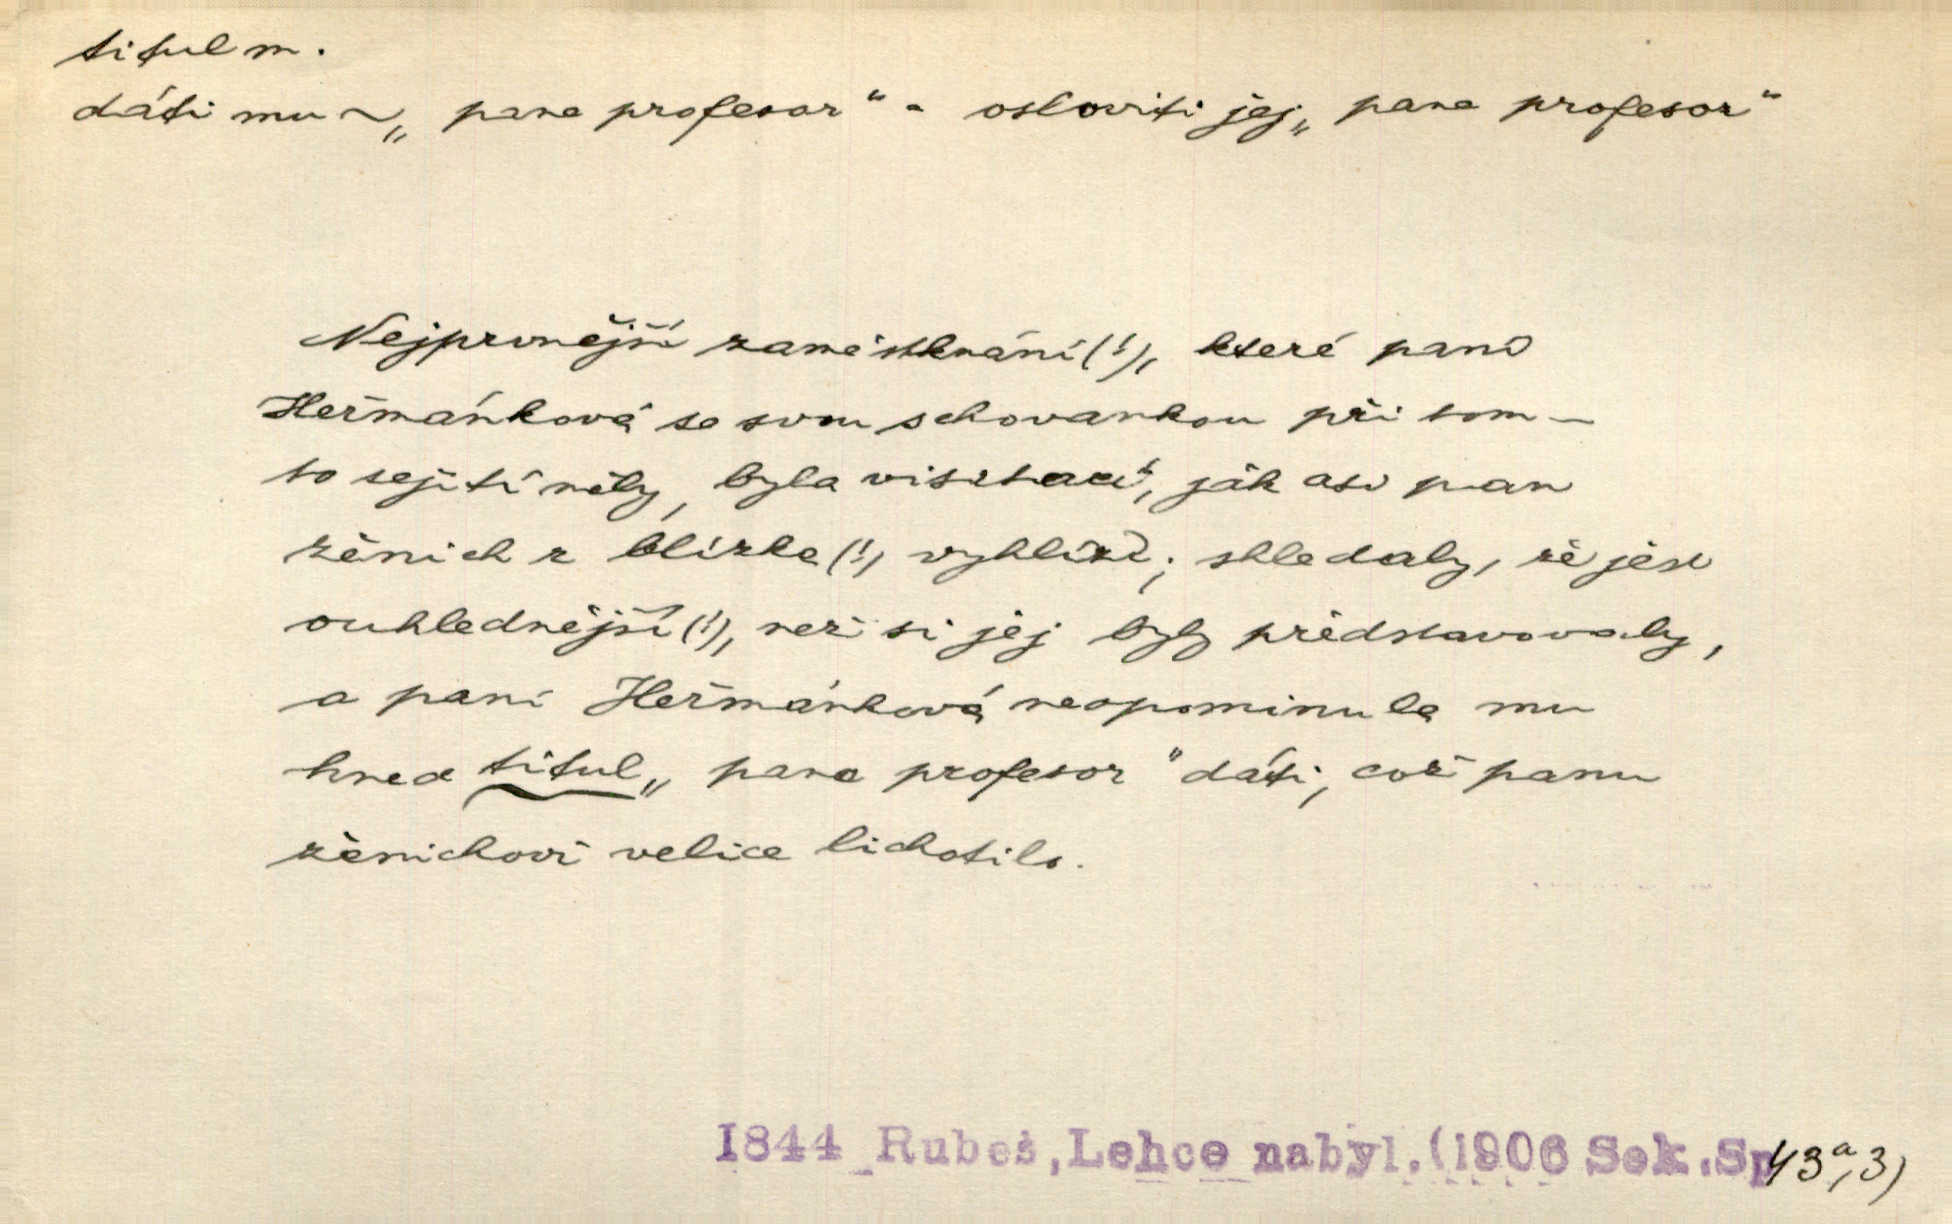 titul m.
dáti mu ~ „pane profesor“ - osloviti jej „pane profesor“
Nejprvnější zaměstknání(!), které paní
Heřmánková se svou schovankou při tom-
to sejití měly, byla visitací, jak asi pan
ženich z blízka(!) vyhlíží; shledaly, že jest
ouhlednější(!), než si jej byly představovaly,
a paní Heřmánková neopominula mu
hned titul „pane profesor“ dáti, což panu
ženichovi velice lichotilo.
1844 Rubeš, Lehce nabyl. (1906 Sek. Sp 43a,3)